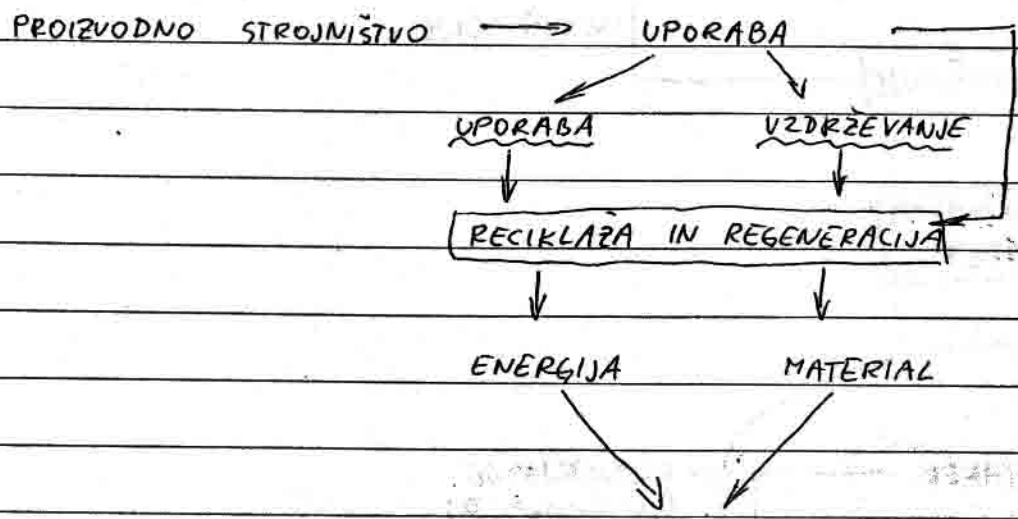 PROIZVODNO STROJNIŠTVO → UPORABA
UPORABA VZDRŽEVANJE
RECIKLAŽA IN REGENERACIJA
ENERGIJA MATERIAL